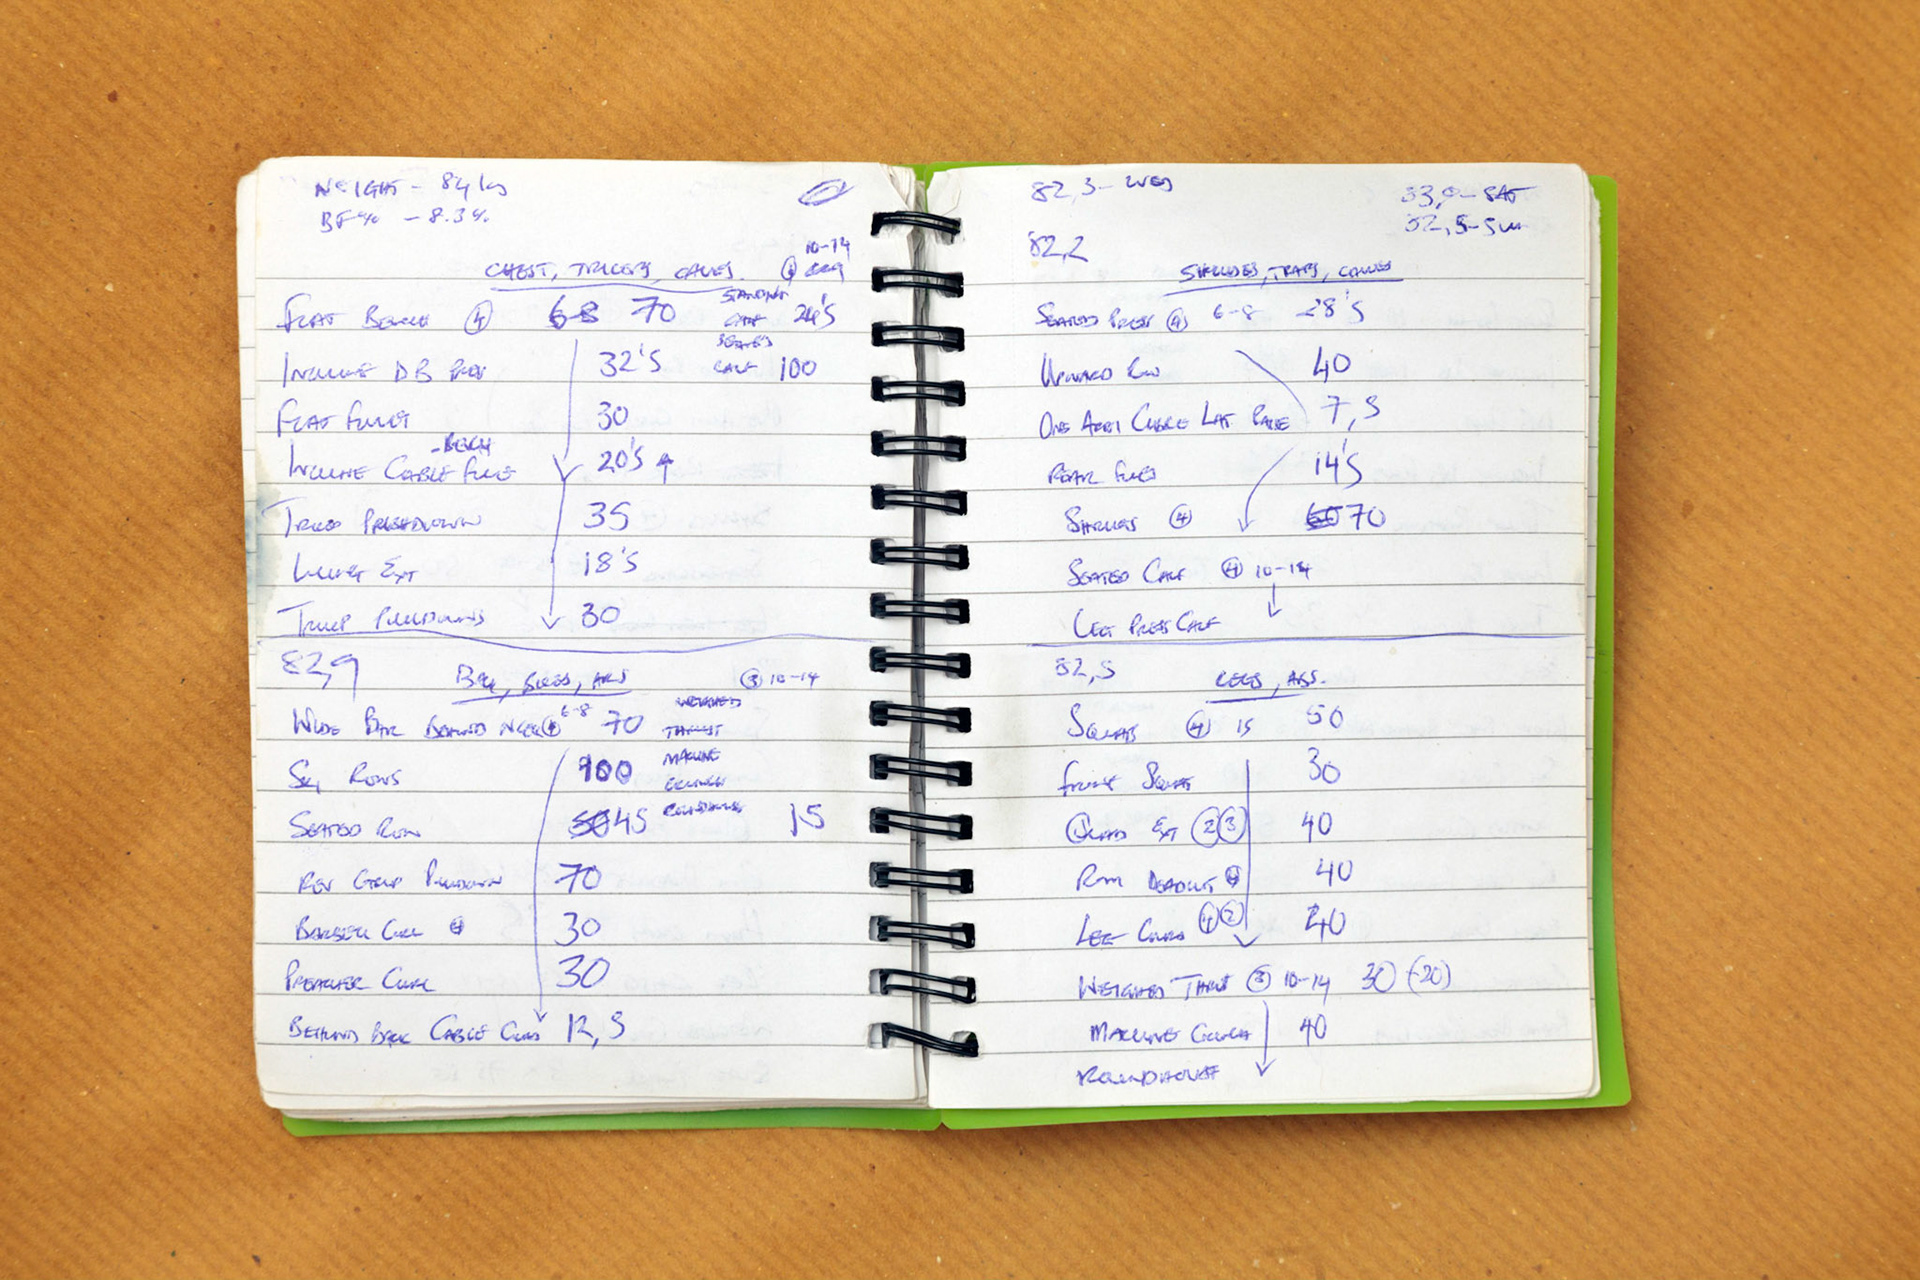 WEIGHT - 84kg
BF% - 8.3%
CHEST, TRICEPS, CALVES. ④ 10-14
FLAT BENCH ④ 6-8 70 STANDING CALF 24'S
INCLINE DB PRESS 32'S SEATED CALF 100
FLAT FLYES 30
INCLINE CABLE FLYE - BENCH 20'S ↑
TRICEP PUSHDOWN 35
EXT 18'S
TRICEP PULLDOWNS 30
82,9
BACK, BICEPS, ABS ③ 10-14
WIDE BAR BEHIND NECK ④ 6-8 70 WEIGHTED
THRUST
SQ, ROWS 100 MACHINE
CRUNCH
SEATED ROW 45 ROUNDHOUSE 15
REV GRIP PULLDOWN 70
BARBELL CURL ④ 30
PREACHER CURL 30
BEHIND BACK CABLE CURLS 12,5
82,3 - WED
83,9 - SAT
82,5 - SUN
82,2
SHOULDERS, TRAPS, CALVES
SEATED PRESS ④ 6-8 28'S
UPWARD ROW 40
ONE ARM CABLE LAT RAISE 7,5
REAR FLYES 14'S
SHRUGS ④ 70
SEATED CALF ④ 10-14
LEG PRESS CALF
82,5
LEGS, ABS.
SQUATS ④ 15 50
FRONT SQUAT 30
QUAD EXT ② ③ 40
ROM DEADLIFT ④ 40
LEG CURLS ④ ② 40
WEIGHTED THRUST ③ 10-14 30 (20)
MACHINE CRUNCH 40
ROUNDHOUSE